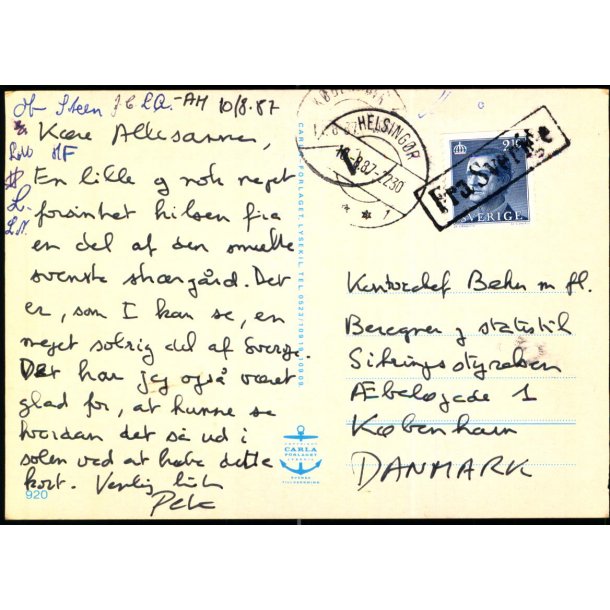 Steen
10/8-87
Kære Allesammen,
En lille og nok noget
forsinket hilsen fra
en del af den smukke
svenske skærgård. Det
er, som I kan se, en
meget solrig del af Sverige.
Det har jeg også været
glad for, at kunne se
hvordan det så ud i
solen ved at købe dette
kort. Venlig
920
CARLA FORLAGET, LYSEKIL TEL 0523/109
COPYRIGHT
CARLA
FORLAGET
LYSEKIL
SVENSK
TILLVERKNING
HELSINGØR
.8.87-2230
1
Fra Sverige
SVERIGE
Kontorchef Behn m fl.
Beregner og statistik
Sikringsstyrelsen
Æbeløgade 1
København
DANMARK